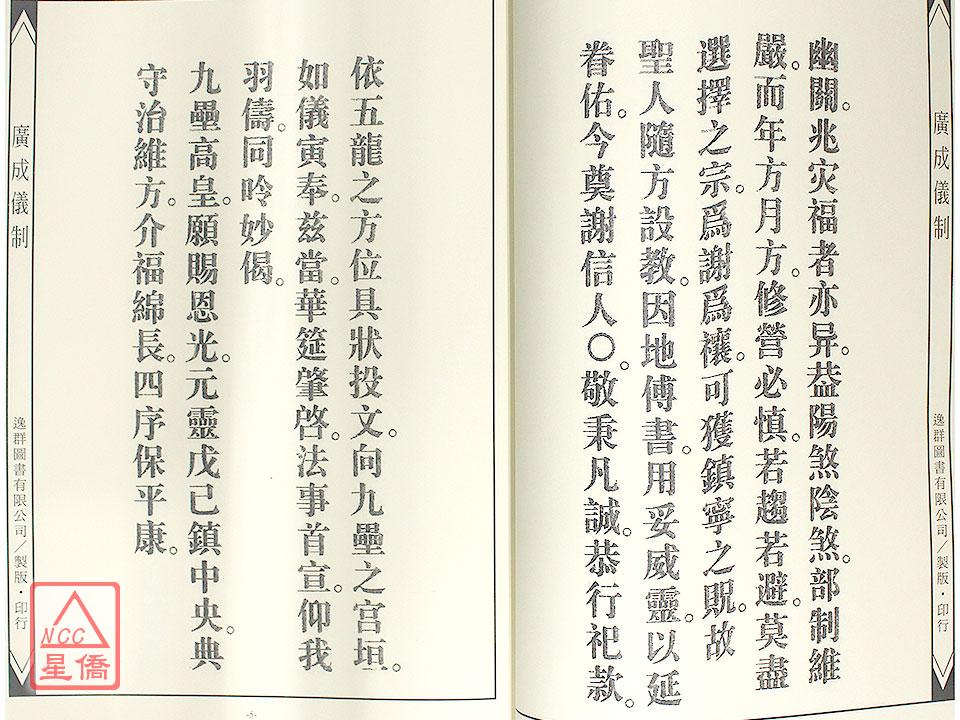 廣成儀制
逸群圖書有限公司／製版・印行
幽關。兆灾福者亦异。益陽煞陰煞。部制維
嚴。而年方月方。修營必慎。若趨若避。莫盡
選擇之宗。爲謝爲禳。可獲鎮寧之貺。故
聖人隨方設教。因地傅書。用妥威靈。以延
眷佑。今奠謝信人〇。敬秉凡誠。恭行祀款。
依五龍之方位具狀投文。向九壘之宮垣。
如儀寅奉。兹當。華筵肇啓。法事首宣。仰我
羽儔。同吟妙偈。
九壘高皇。願賜恩光。元靈戊己鎮中央。典
守治維方。介福綿長。四序保平康。
廣成儀制
逸群圖書有限公司／製版・印行
-5-
NCC
星僑